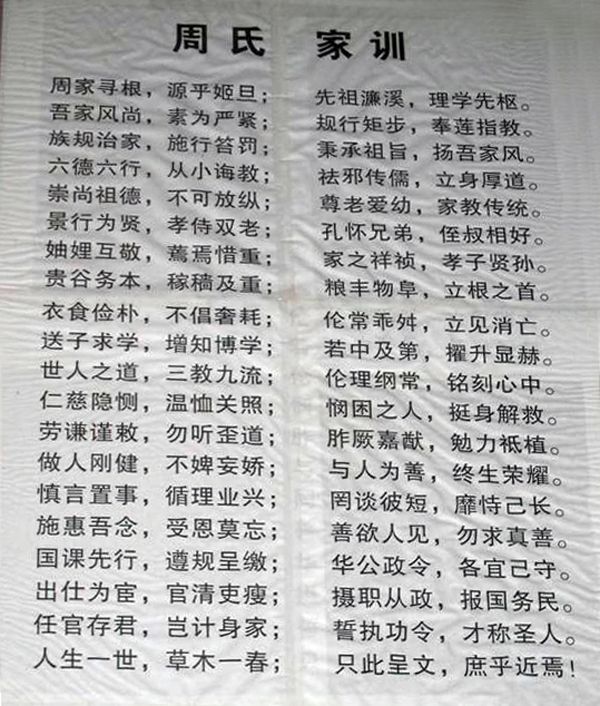 周氏 家训
周家寻根，源乎姬旦； 先祖濂溪，理学先枢。
吾家风尚，素为严紧； 规行矩步，奉莲指教。
族规治家，施行笞罚； 秉承祖旨，扬吾家风。
六德六行，从小诲教； 祛邪传儒，立身厚道。
崇尚祖德，不可放纵； 尊老爱幼，家教传统。
景行为贤，孝侍双老； 孔怀兄弟，侄叔相好。
妯娌互敬，蔫焉惜重； 家之祥祯，孝子贤孙。
贵谷务本，稼穑及重； 粮丰物阜，立根之首。
衣食俭朴，不倡奢耗； 伦常乖舛，立见消亡。
送子求学，增知博学； 若中及第，擢升显赫。
世人之道，三教九流； 伦理纲常，铭刻心中。
仁慈隐恻，温恤关照； 悯困之人，挺身解救。
劳谦谨敕，勿听歪道； 胙厥嘉猷，勉力祗植。
做人刚健，不婢妄娇； 与人为善，终生荣耀。
慎言置事，循理业兴； 罔谈彼短，靡恃己长。
施惠吾念，受恩莫忘； 善欲人见，勿求真善。
国课先行，遵规呈缴； 华公政令，各宜己守。
出仕为宦，官清吏瘦； 摄职从政，报国务民。
任官存君，岂计身家； 誓执功令，才称圣人。
人生一世，草木一春； 只此呈文，庶乎近焉！